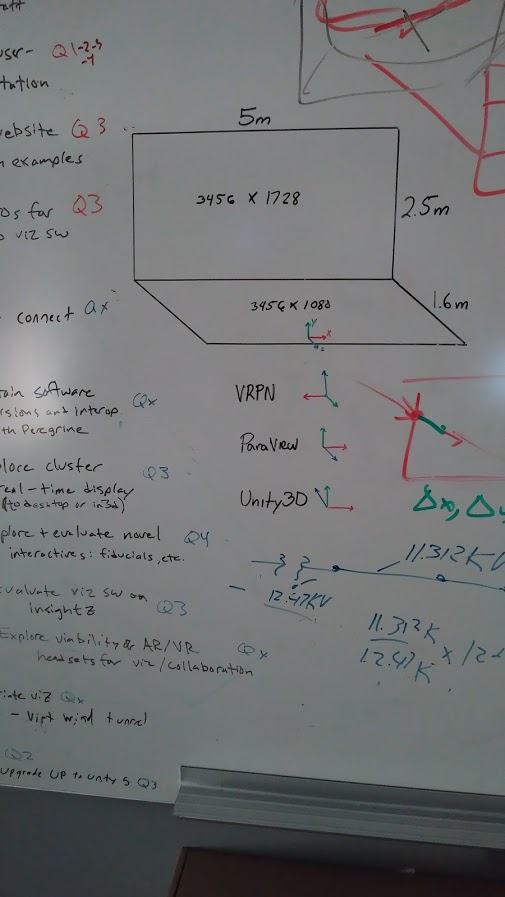 Q1-2-3
-4
tation
ebsite Q3
examples
os for Q3
viz sw
connect Qx
ain software Qx
rsions and interop
th Peregrine
lore cluster Q3
real-time display
(to desktop or in3d)
plore + evaluate novel Q4
interactives: fiducials, etc.
valuate viz sw on
insight 2 Q3
Explore viability of AR/VR Qx
headsets for viz/collaboration
viz Qx
- virt wind tunnel
Q2
upgrade UP to unity 5 Q3
5m
3456 x 1728
2.5m
3456 x 1080
1.6m
y
x
z
VRPN
ParaView
Unity3D
Δx, Δ
11.312KV
12.47KV
11.312K
12.47K
x 12